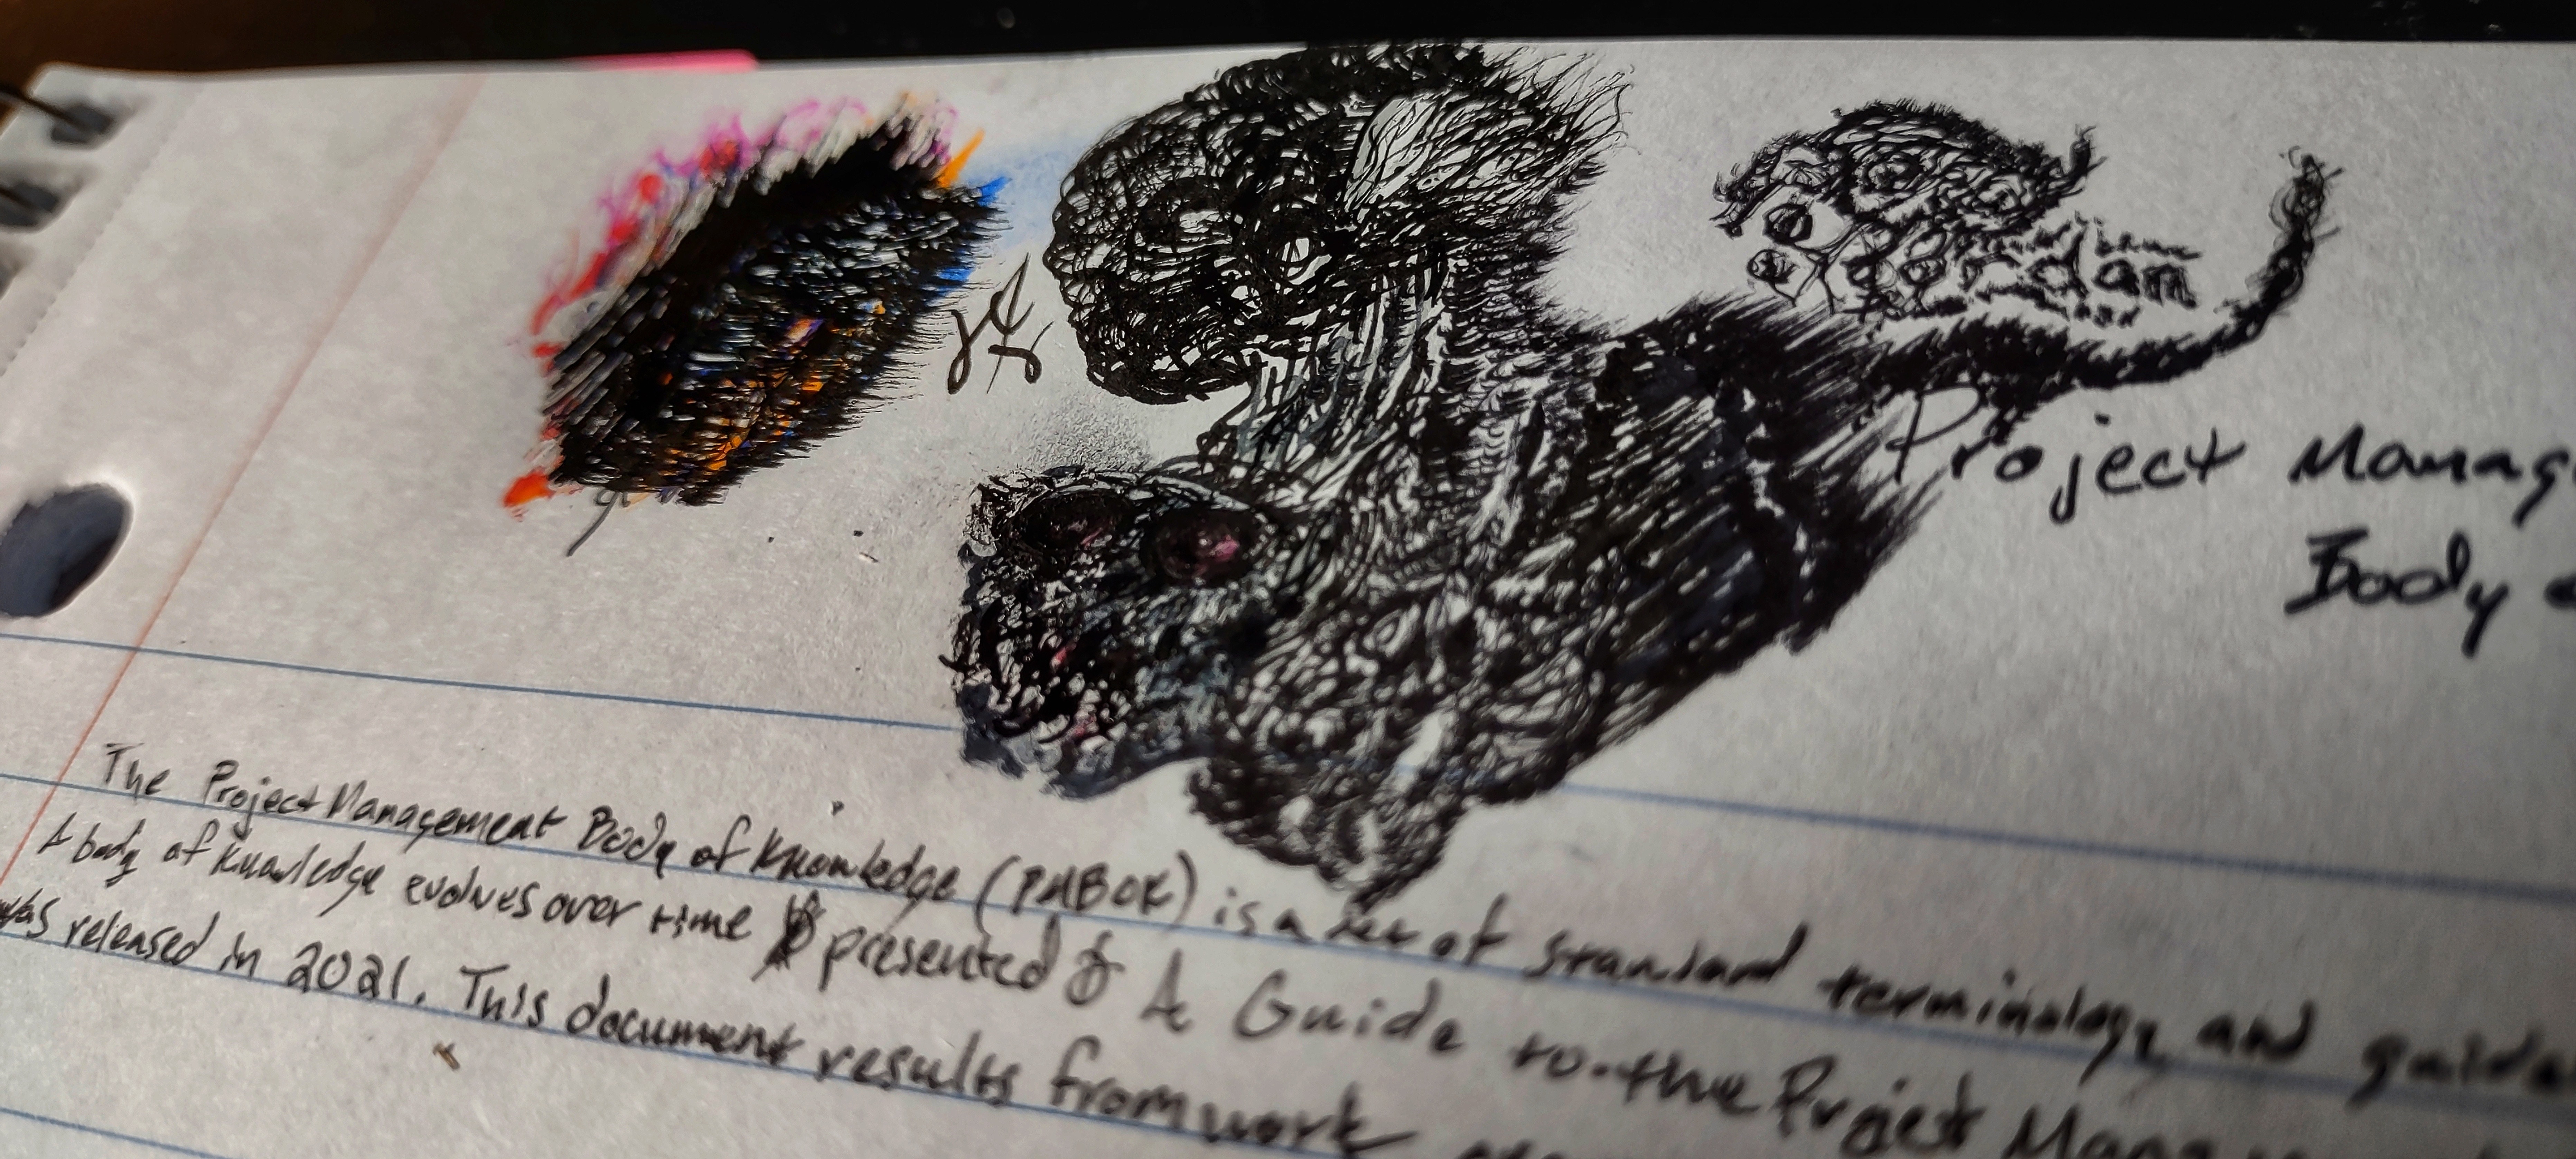 dam
Project Manag
Body o
The Project Management Body of Knowledge (PMBOK) is a set of standard terminology and guide
A body of knowledge evolves over time presented A Guide to the Project Mana
was released in 2021. This document results from work